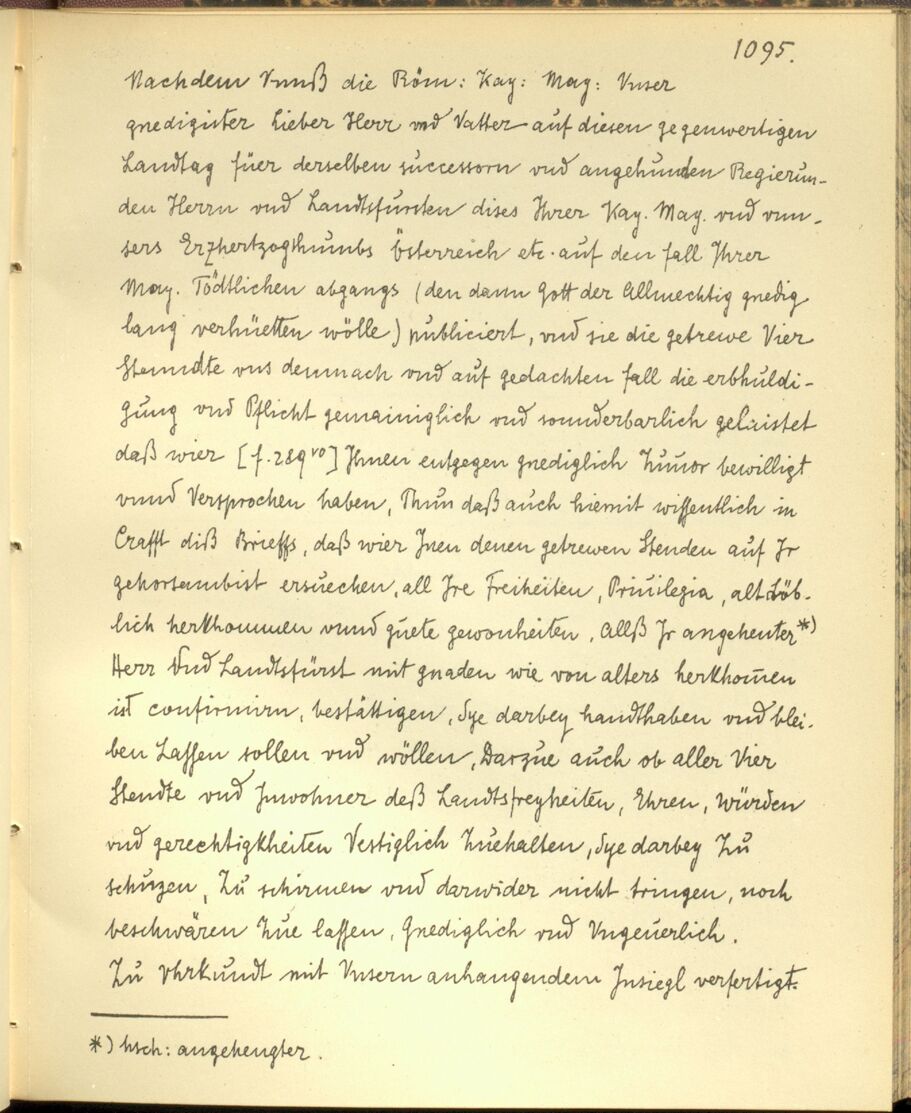 1095.
Nachdem Vnnß die Röm: Kay: May: Vnser
gnedigister Lieber Herr vnd Vatter auf diesen gegenwertigen
Landtag füer derselben successorn vnd angehunden Regierun-
den Herrn vnd Landtsfürsten dises Ihrer Kay. May. vnd vnn-
sers Erzhertzogthumbs Österreich etc. auf den fall Ihrer
May. Tödtlichen abgangs (den dann Gott der Allmechtig gnedig
lang verhüetten wölle) publiciert, vnd sie die getrewe Vier
Stenndte vns demnach vnd auf gedachten fall die erbhuldi-
gung vnd Pflicht gemainiglich vnd sonnderbarlich geleistet
daß wier [f. 289 vo] Ihnen entgegen gnediglich Zuuor bewilligt
vnnd Versprochen haben, Thun daß auch hiemit wissentlich in
Crafft diß Brieffs, daß wier Jnen denen getrewen Stenden auf Jr
gehorsambist ersuechen, all Jre Freiheiten, Priuilegia, alt Löb-
lich herkhommen vnnd guete gewonheiten, Allß Jr angehenter*)
Herr Vnd Landtsfürst mit gnaden wie von alters herkhom̅en
ist confirmirn, bestättigen, Sye darbey handthaben vnd blei-
ben Lassen sollen vnd wöllen, Darzue auch ob aller Vier
Stendte vnd Jnwohner deß Landtsfreyheiten, Ehren, Würden
vnd gerechtigkheiten Vestiglich Zuehalten, Sye darbey Zu
schuzen, Zu schirmen vnd darwider nicht tringen, noch
beschwären Zue lassen, Gnediglich vnd Vngeuerlich.
Zu Vhrkundt mit Vnsern anhangendem Jnsiegl verfertigt.
*) hsch: angehengter.